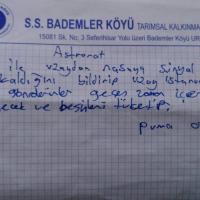 S.S. BADEMLER KÖYÜ TARIMSAL KALKINMA
15081 Sk. No: 3 Seferihisar Yolu Üzeri Bademler Köyü UR
Astronot
ile uzaydan Nasaya sinyal
kaldığını bildirip uzay istasyon
gönderirler geçen zaman içer
ecek ve besileri tüketip,